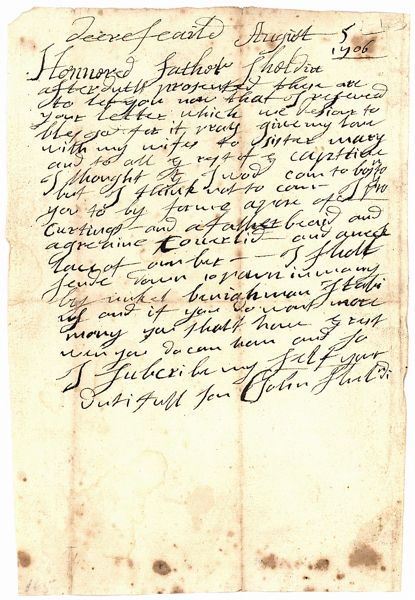 deerefeild August 5
1706
Honnored father Sheldin
after duty presented these are
to let you now that I reseved
your letter which we desour to
bles god for it pray give my love
with my wifes to sister mary
and to all ye rest of ye
I thought yt I wod com to boston
but I think not to com I pro
you to by for me a pare of
curtings and a fathar beard and
a greenine coverlid and a neck
lace of amber I shall
sende down 10 pown in mony
by unkel benighman stebi
ns and if you do want more
mony you shall have ye rest
wen you do can ham and so
I subcribe my self your
dutifull son John Sheldi